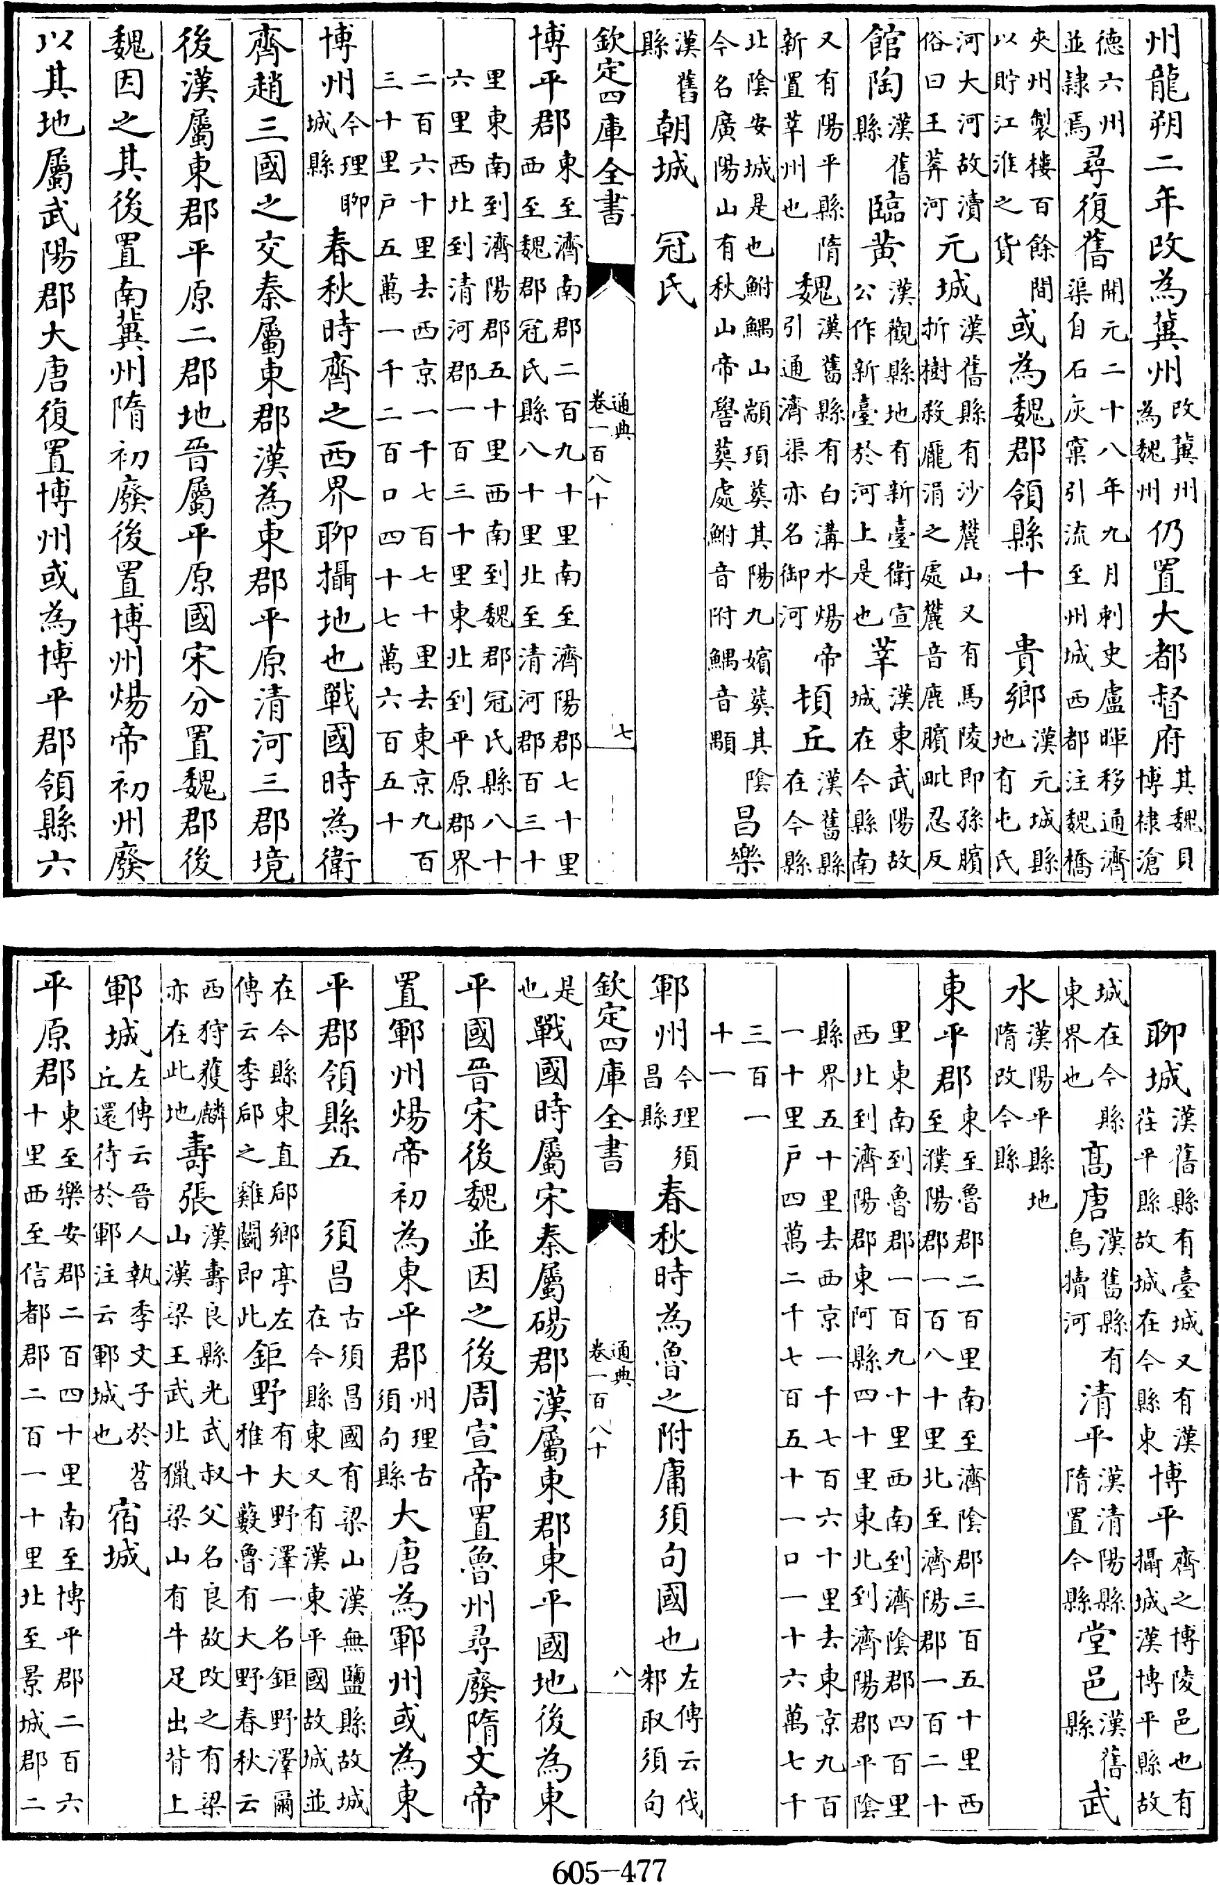 州龍朔二年改為冀州改冀州為魏州仍置大都督府其魏貝博棣滄
德六州並隸焉尋復舊開元二十八年九月刺史盧暉移通濟渠自石灰窠引流至州城西都注魏橋
夾州製樓百餘間以貯江淮之貨或為魏郡領縣十 貴鄉漢元城縣地有屯氏
河大河故瀆俗曰王莽河元城漢舊縣有沙麓山又有馬陵即孫臏折樹殺龐涓之處麓音鹿臏毗忍反
館陶漢舊縣臨黃漢觀縣地有新臺衛宣公作新臺於河上是也莘漢東武陽故城在今縣南
又有陽平縣隋新置莘州也魏漢舊縣有白溝水煬帝引通濟渠亦名御河頓丘漢舊縣在今縣
北陰安城是也鮒鰅山顓頊葬其陽九嬪葬其陰今名廣陽山有秋山帝嚳葬處鮒音附鰅音顒昌樂
漢舊縣朝城 冠氏
欽定四庫全書 通典卷一百八十 七
博平郡東至濟南郡二百九十里南至濟陽郡七十里西至魏郡冠氏縣八十里北至清河郡百三十
里東南到濟陽郡五十里西南到魏郡冠氏縣八十六里西北到清河郡一百三十里東北到平原郡界
二百六十里去西京一千七百七十里去東京九百三十里戶五萬一千二百口四十七萬六百五十
博州今理聊城縣春秋時齊之西界聊攝地也戰國時為衛
齊趙三國之交秦屬東郡漢為東郡平原清河三郡境
後漢屬東郡平原二郡地晉屬平原國宋分置魏郡後
魏因之其後置南冀州隋初廢後置博州煬帝初州廢
以其地屬武陽郡大唐復置博州或為博平郡領縣六
聊城漢舊縣有臺城又有漢茌平縣故城在今縣東博平齊之博陵邑也有攝城漢博平縣故
城在今縣東界也高唐漢舊縣有烏犢河清平漢清陽縣隋置今縣堂邑漢舊縣武
水漢陽平縣地隋改今縣
東平郡東至魯郡二百里南至濟陰郡三百五十里西至濮陽郡一百八十里北至濟陽郡一百二十
里東南到魯郡一百九十里西南到濟陰郡四百里西北到濟陽郡東阿縣四十里東北到濟陽郡平陰
縣界五十里去西京一千七百六十里去東京九百一十里戶四萬二千七百五十一口一十六萬七千
三百一十一
鄆州今理須昌縣春秋時為魯之附庸須句國也左傳云伐邾取須句
欽定四庫全書 通典卷一百八十 八
是也戰國時屬宋秦屬碭郡漢屬東郡東平國地後為東
平國晉宋後魏並因之後周宣帝置魯州尋廢隋文帝
置鄆州煬帝初為東平郡州理古須句縣大唐為鄆州或為東
平郡領縣五 須昌古須昌國有梁山漢無鹽縣故城在今縣東又有漢東平國故城並
在今縣東直郈鄉亭左傳云季郈之雞鬭即此鉅野有大野澤一名鉅野澤爾雅十藪魯有大野春秋云
西狩獲麟亦在此地壽張漢壽良縣光武叔父名良故改之有梁山漢梁王武北獵梁山有牛足出背上
鄆城左傳云晉人執季文子於苕丘還待於鄆注云鄆城也宿城
平原郡東至樂安郡二百四十里南至博平郡二百六十里西至信都郡二百一十里北至景城郡二
605-477